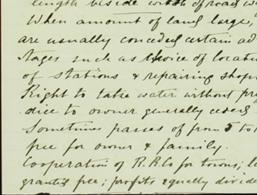 length beside width of road w
When amount of land large,
are usually conceded certain ad
tages such as choice of locatio
of stations & repairing shops
Right to take water without pre
dice to owner generally
Sometimes passes of from 5 to 1
free for owner & family.
Cooperation of R.R.Co for towns; l
granted free; profits equally divide